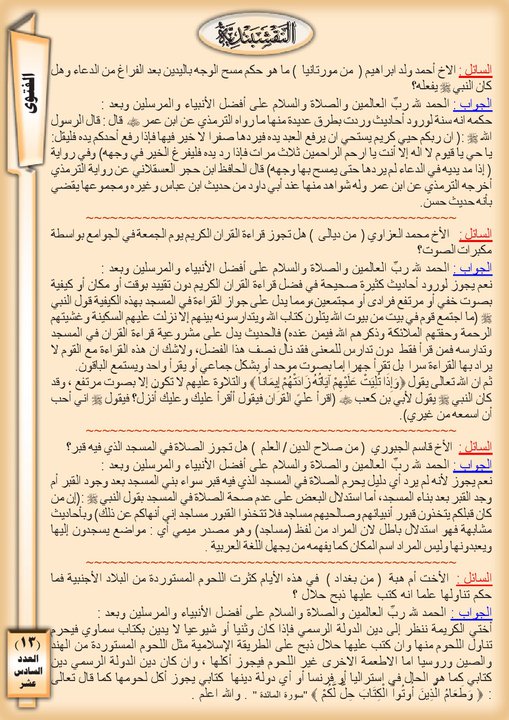 النقشبندية
الفتوى
السائل : الاخ أحمد ولد ابراهيم ( من مورتانيا ) ما هو حكم مسح الوجه باليدين بعد الفراغ من الدعاء وهل
كان النبي ﷺ يفعله؟
الجواب : الحمد لله ربّ العالمين والصلاة والسلام على أفضل الأنبياء والمرسلين وبعد :
حكمه انه سنة لورود أحاديث وردت بطرق عديدة منها ما رواه الترمذي عن ابن عمر ﷺ قال : قال الرسول
الله ﷺ :( ان ربكم حيي كريم يستحي ان يرفع العبد يده فيردها صفرا لا خير فيها فإذا رفع أحدكم يده فليقل:
يا حي يا قيوم لا اله إلا أنت يا ارحم الراحمين ثلاث مرات فإذا رد يده فليفرغ الخير في وجهه) وفي رواية
( إذا مد يديه في الدعاء لم يردها حتى يمسح بها وجهه) قال الحافظ ابن حجر العسقلاني عن رواية الترمذي
أخرجه الترمذي عن ابن عمر وله شواهد منها عند أبي داود من حديث ابن عباس وغيره ومجموعها يقضي
بأنه حديث حسن.
السائل : الأخ محمد العزاوي ( من ديالى ) هل تجوز قراءة القران الكريم يوم الجمعة في الجوامع بواسطة
مكبرات الصوت؟
الجواب : الحمد لله ربّ العالمين والصلاة والسلام على أفضل الأنبياء والمرسلين وبعد :
نعم يجوز لورود أحاديث كثيرة صحيحة في فضل قراءة القران الكريم دون تقييد بوقت أو مكان أو كيفية
بصوت خفي أو مرتفع فرادى أو مجتمعين،ومما يدل على جواز القراءة في المسجد بهذه الكيفية قول النبي
ﷺ (ما اجتمع قوم في بيت من بيوت الله يتلون كتاب الله ويتدارسونه بينهم إلا نزلت عليهم السكينة وغشيتهم
الرحمة وحفتهم الملائكة وذكرهم الله فيمن عنده) فالحديث يدل على مشروعية قراءة القران في المسجد
وتدارسه فمن قرأ فقط دون تدارس للمعنى فقد نال نصف هذا الفضل، ولاشك ان هذه القراءة مع القوم لا
يراد بها القراءة سرا بل تقرأ جهرا إما بصوت موحد أو بشكل جماعي أو يقرأ واحد ويستمع الباقون.
ثم ان الله تعالى يقول ﴿وَإِذَا تُلِيَتْ عَلَيْهِمْ آيَاتُهُ زَادَتْهُمْ إِيمَانًا﴾ والتلاوة عليهم لا تكون إلا بصوت مرتفع ، وقد
كان النبي ﷺ يقول لأبي بن كعب ﷺ (اقرأ عليّ القرآن فيقول أأقرأ عليك وعليك أنزل؟ فيقول ﷺ اني أحب
أن اسمعه من غيري).
السائل : الأخ قاسم الجبوري ( من صلاح الدين / العلم ) هل تجوز الصلاة في المسجد الذي فيه قبر؟
الجواب : الحمد لله ربّ العالمين والصلاة والسلام على أفضل الأنبياء والمرسلين وبعد :
نعم يجوز لأنه لم يرد أي دليل يحرم الصلاة في المسجد الذي فيه قبر سواء بني المسجد بعد وجود القبر أم
وجد القبر بعد بناء المسجد، أما استدلال البعض على عدم صحة الصلاة في المسجد بقول النبي ﷺ :(إن من
كان قبلكم يتخذون قبور أنبيائهم وصالحيهم مساجد فلا تتخذوا القبور مساجد إني أنهاكم عن ذلك) وبأحاديث
مشابهة فهو استدلال باطل لان المراد من لفظ (مساجد) وهو مصدر ميمي أي : مواضع يسجدون إليها
ويعبدونها وليس المراد اسم المكان كما يفهمه من يجهل اللغة العربية .
السائل : الأخت أم هبة ( من بغداد ) في هذه الأيام كثرت اللحوم المستوردة من البلاد الأجنبية فما
حكم تناولها علما انه كتب عليها ذبح حلال ؟
الجواب : الحمد لله ربّ العالمين والصلاة والسلام على أفضل الأنبياء والمرسلين وبعد :
أختي الكريمة ننظر إلى دين الدولة الرسمي فإذا كان وثنيا أو شيوعيا لا يدين بكتاب سماوي فيحرم
تناول اللحوم منها وان كتب عليها حلال ذبح على الطريقة الإسلامية مثل اللحوم المستوردة من الهند
والصين وروسيا اما الاطعمة الاخرى غير اللحوم فيجوز أكلها ، وان كان دين الدولة الرسمي دين
كتابي كما هو الحال في إستراليا أو فرنسا أو أي دولة دينها كتابي يجوز أكل لحومها كما قال تعالى
: ﴿ وَطَعَامُ الَّذِينَ أُوتُواْ الْكِتَابَ حِلٌّ لَّكُمْ ﴾ "سورة المائدة " . والله اعلم .
(١٣)
العدد
السادس
عشر